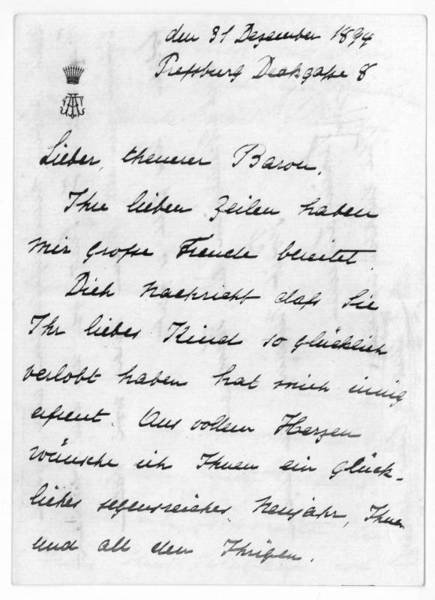 den 31 Dezember 1894
Pressburg Deakgasse 8
Lieber, theuerer Baron.
Ihre lieben Zeilen haben
mir große Freude bereitet.
Die Nachricht daß Sie
Ihr liebes Kind so glücklich
verlobt haben hat mich innig
erfreut. Aus vollem Herzen
wünsche ich Ihnen ein glück-
liches segensreiches Neujahr, Ihnen
und all den Ihrigen.